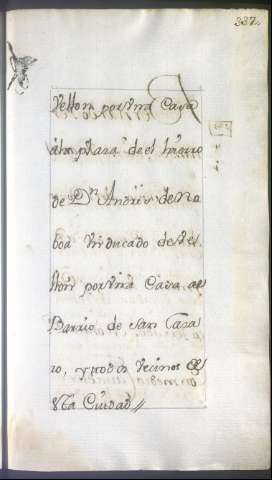 337.
Vellon por una Casa
à la plaza de el hierro
de Dn. Andres de No
boa un ducado de Ve
llon por una Casa al
Barrio de San Laza
ro, y todos vecinos de
esta Ciudad//